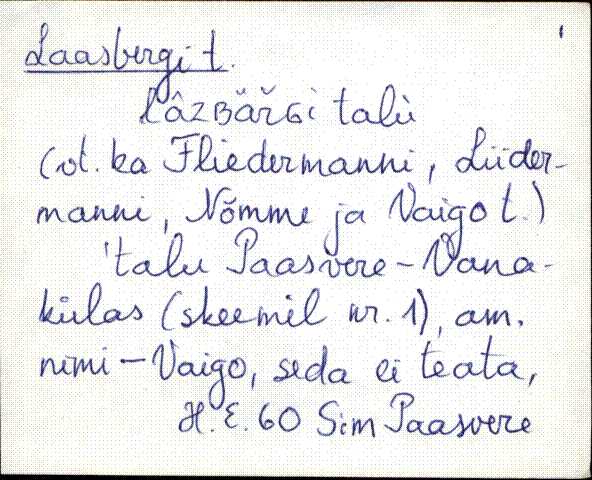 Laasbergi t.
lâzʙäřɢi talù
(vt. ka Fliedermanni, Lüder-
manni, Nõmme ja Vaigo t.)
'talu Paasvere-Vana-
külas (skeemil nr. 1), am.
nimi - Vaigo, seda ei teata,
H. E. 60 Sim Paasvere